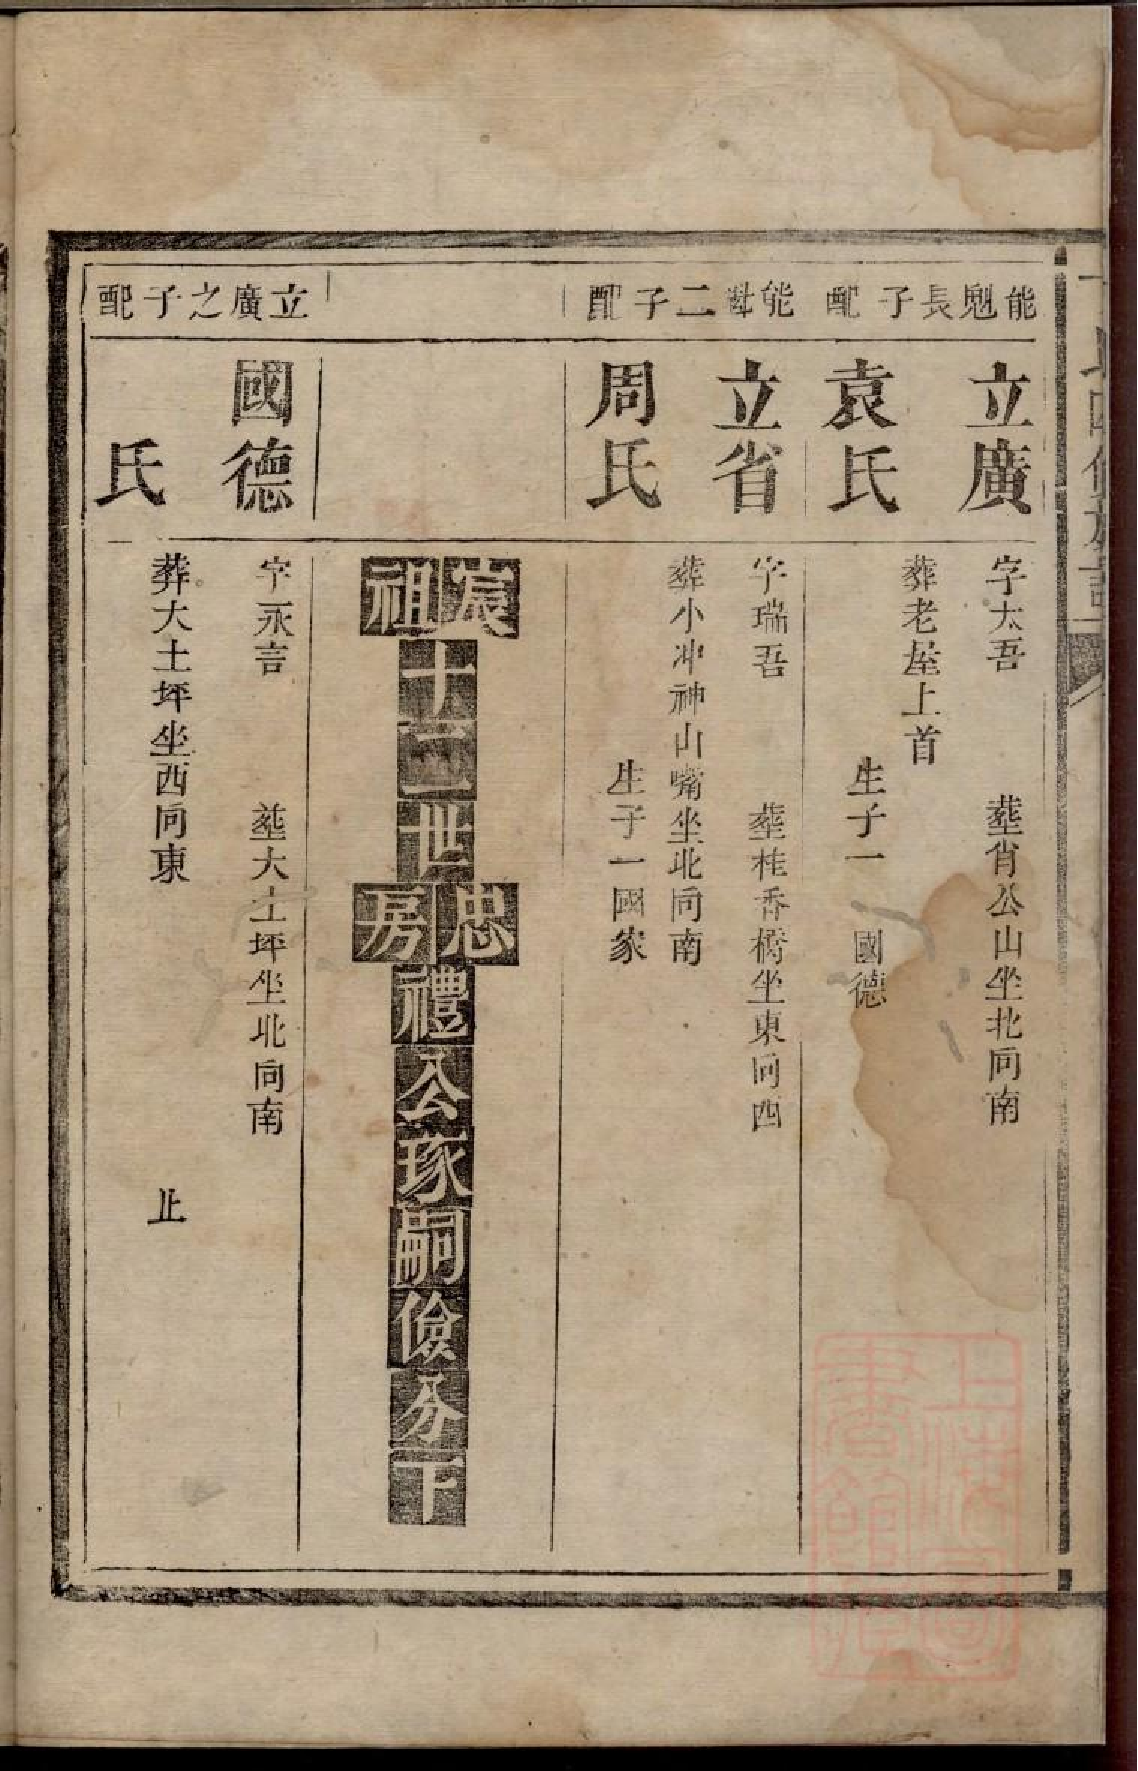 能魁長子配
立廣
字太吾　葬肖公山坐北向南
袁氏
葬老屋上首
生子一　國德
能魁二子配
立省
字瑞吾　葬桂香橋坐東向西
周氏
葬小冲神山嘴坐北向南
生子一國家
宸祖十二世忠房禮公琢嗣儉公下
立廣之子配
國德
字永言　葬大土坪坐北向南
氏
葬大土坪坐西向東　止
上海圖
書館藏